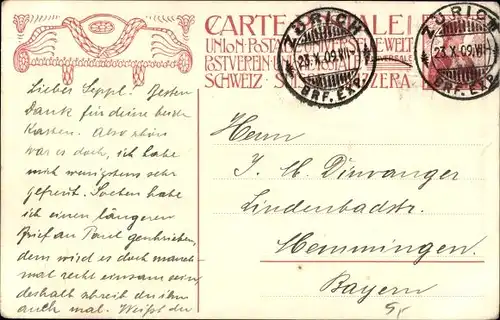 CARTE POSTALE
UNION POSTALE UNIVERSELLE WELT
POSTVEREIN UNIONE POSTALE UNIVERSALE
SCHWEIZ SUISSE SVIZZERA
ZÜRICH
23.X.09.VII
BRF. EXP.
ZÜRICH
23.X.09.VII
BRF. EXP.
Lieber Seppl! Besten
Dank für deine beiden
Karten. Also schön
war es doch, ich habe
mich wenigstens sehr
gefreut. Soeben habe
ich einen längeren
Brief an geschrieben,
dem wird es doch manch-
mal recht einsam sein,
deshalb schreib du ihm
auch mal. Weißt du
Herrn
J. M. Dirwanger
Lindenbadstr.
Memmingen.
Bayern